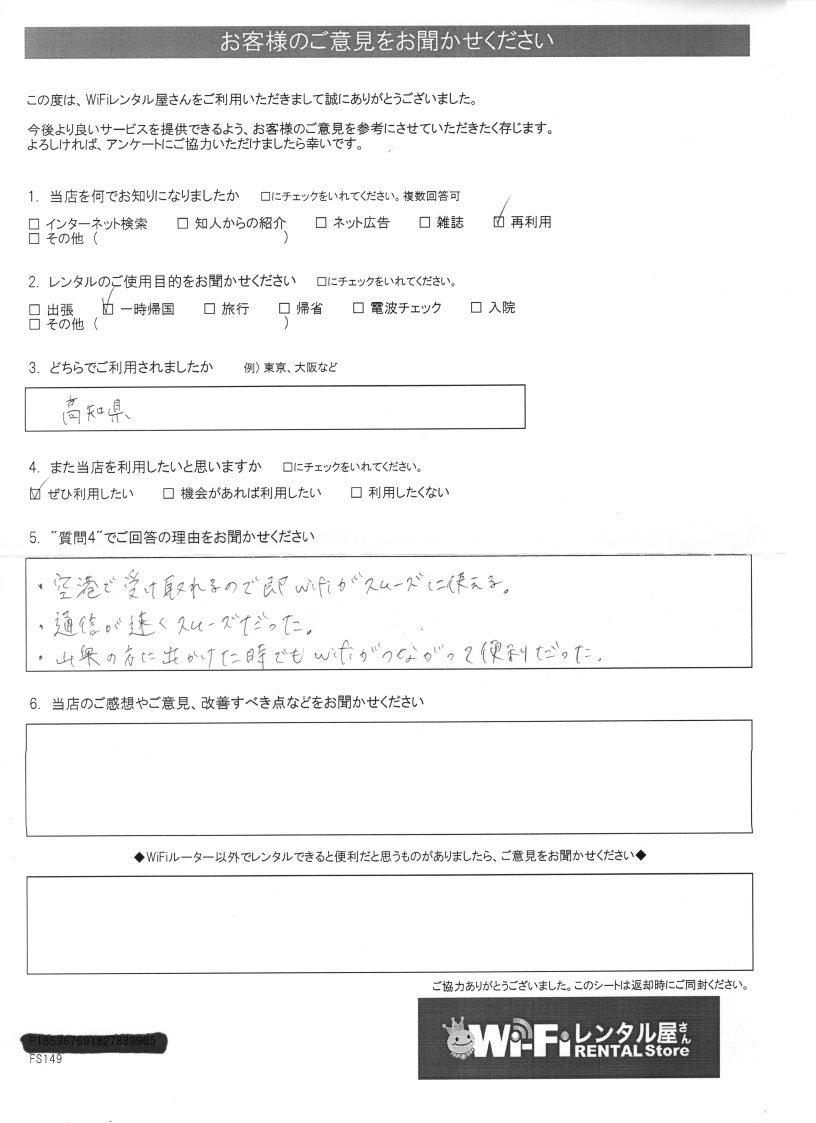 お客様のご意見をお聞かせください
この度は、WiFiレンタル屋さんをご利用いただきまして誠にありがとうございました。
今後より良いサービスを提供できるよう、お客様のご意見を参考にさせていただきたく存じます。
よろしければ、アンケートにご協力いただけましたら幸いです。
1. 当店を何でお知りになりましたか □にチェックをいれてください。複数回答可
□ インターネット検索 □ 知人からの紹介 □ ネット広告 □ 雑誌 ☑ 再利用
□ その他 ( )
2. レンタルのご使用目的をお聞かせください □にチェックをいれてください。
□ 出張 ☑ 一時帰国 □ 旅行 □ 帰省 □ 電波チェック □ 入院
□ その他 ( )
3. どちらでご利用されましたか 例) 東京、大阪など
高知県、
4. また当店を利用したいと思いますか □にチェックをいれてください。
☑ ぜひ利用したい □ 機会があれば利用したい □ 利用したくない
5. ”質問4”でご回答の理由をお聞かせください
・空港で受け取れるので即wifiがスムーズに使える。
・通信が速くスムーズだった。
・山奥の方に出かけた時でもwifiがつながって便利だった。
6. 当店のご感想やご意見、改善すべき点などをお聞かせください
◆WiFiルーター以外でレンタルできると便利だと思うものがありましたら、ご意見をお聞かせください◆
ご協力ありがとうございました。このシートは返却時にご同封ください。
Wi-Fiレンタル屋さん
RENTAL Store
FS149